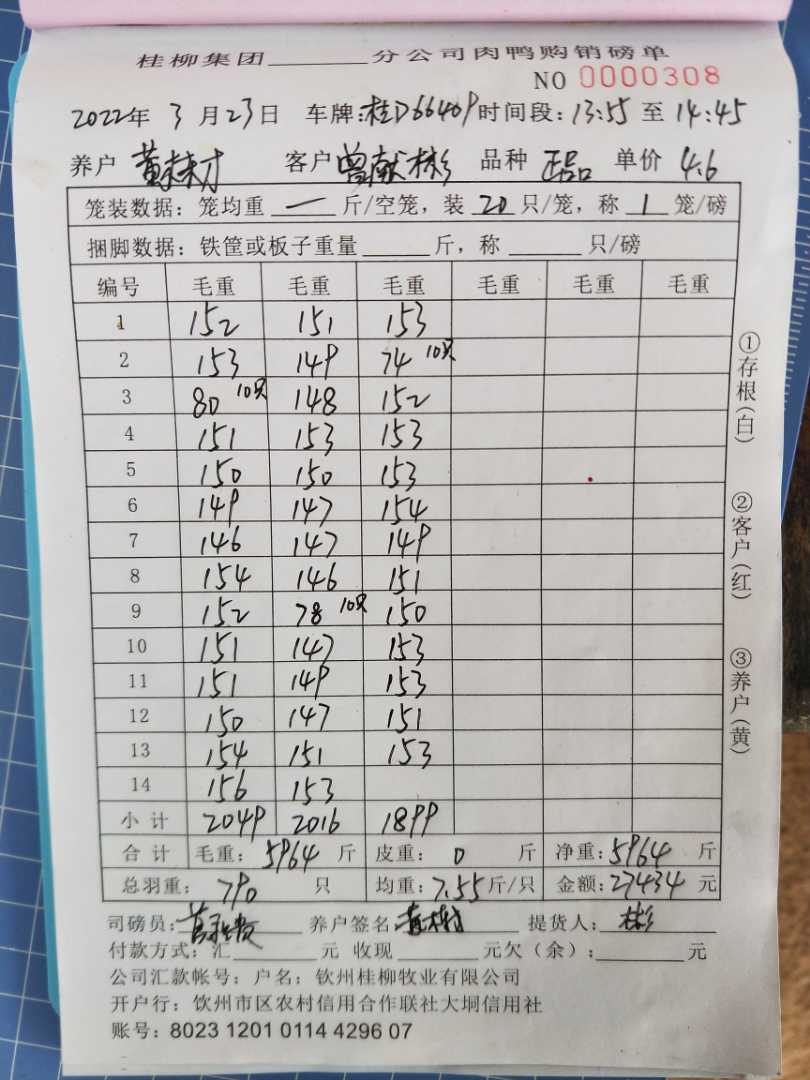 桂柳集团______分公司肉鸭购销磅单
NO 0000308
2022年 3月23日 车牌:桂D66409 时间段:13:55 至 14:45
养户 黄 客户 曾献彬 品种 正品 单价 4.6
笼装数据：笼均重 一 斤/空笼，装 20 只/笼，称 1 笼/磅
捆脚数据：铁筐或板子重量______斤，称______只/磅
编号 毛重 毛重 毛重 毛重 毛重 毛重
1 152 151 153
2 153 149 74 10只
3 80 10只 148 152
4 151 153 153
5 150 150 153
6 149 147 154
7 146 147 149
8 154 146 151
9 152 78 10只 150
10 151 147 153
11 151 149 153
12 150 147 151
13 154 151 153
14 156 153
小计 2049 2016 1899
合计 毛重：5964 斤 皮重：0 斤 净重：5964 斤
总羽重：790 只 均重：7.55 斤/只 金额：27434 元
司磅员： 养户签名： 提货人：彬
付款方式：汇______元 收现______元欠（余）：______元
公司汇款帐号：户名：钦州桂柳牧业有限公司
开户行：饮州市区农村信用合作联社大垌信用社
账号：8023 1201 0114 4296 07
①存根(白)
②客户(红)
③养户(黄)